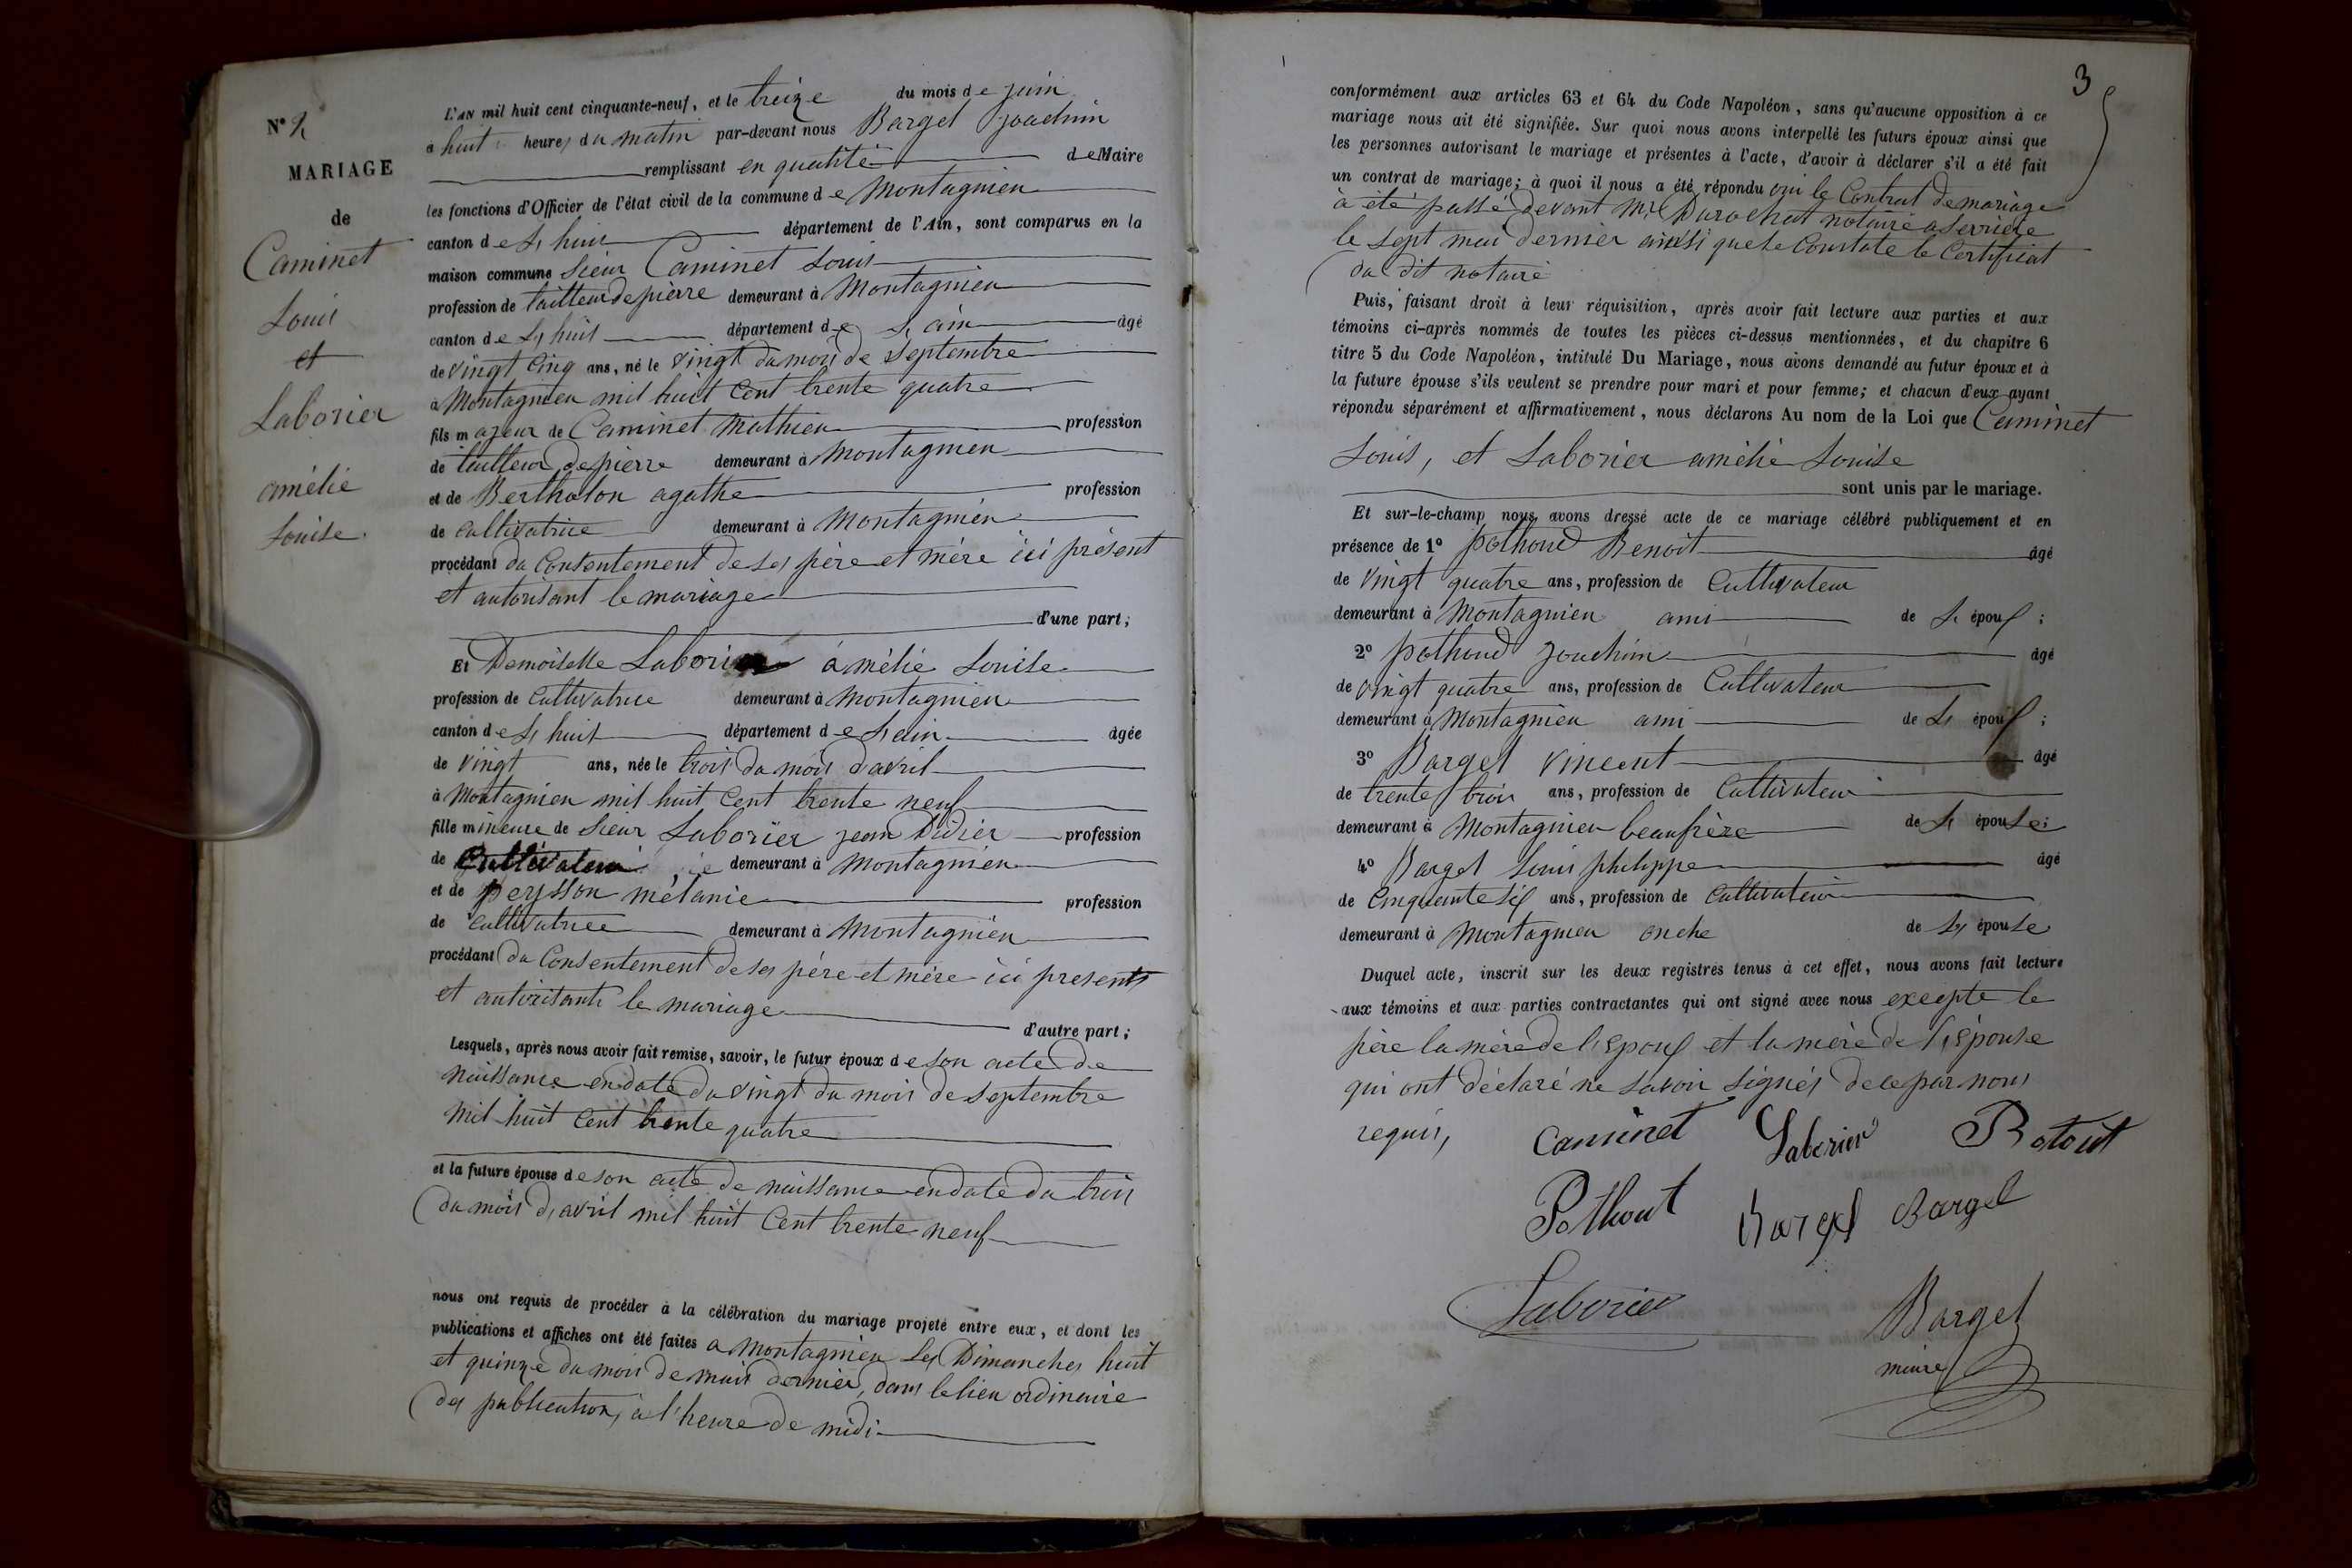 N° 2
MARIAGE
de
Caminet
Louis
et
Laborier
amélie
Louise.
L'AN mil huit cent cinquante-neuf, et le treize du mois de juin
à huit heures du matin par-devant nous Bargel joachim
remplissant en qualité de Maire
les fonctions d'Officier de l'état civil de la commune de Montagnieu
canton de Lhuis département de l'Ain, sont comparus en la
maison commune Sieur Caminet Louis
profession de tailleur de pierre demeurant à Montagnieu
canton de Lhuis département de L'ain âgé
de vingt cinq ans, né le vingt du mois de septembre
à Montagnieu mil huit cent trente quatre
fils majeur de Caminet Mathieu profession
de tailleur de pierre demeurant à Montagnieu
et de Bertholon agathe profession
de cultivatrice demeurant à Montagnieu
procédant du Consentement de ses père et mère ici présent
et autorisant le mariage
d'une part;
Et Demoiselle Laborier amélie Louise
profession de Cultivatrice demeurant à Montagnieu
canton de Lhuis département de L'ain âgée
de vingt ans, née le trois du mois d'avril
à Montagnieu mil huit cent trente neuf
fille mineure de Sieur Laborier jean Didier profession
de Cultivateur demeurant à Montagnieu
et de peysson mélanie profession
de cultivatrice demeurant à Montagnieu
procédant du Consentement de ses père et mère ici presents
et autorisants le mariage
d'autre part;
Lesquels, après nous avoir fait remise, savoir, le futur époux de son acte de
naissance en date du vingt du mois de septembre
mil huit cent trente quatre
et la future épouse de son acte de naissance en date du trois
du mois d'avril mil huit Cent trente neuf
nous ont requis de procéder à la célébration du mariage projeté entre eux, et dont les
publications et affiches ont été faites a Montagnieu Les Dimanches huit
et quinze du mois de mai dernier, dans le lieu ordinaire
des publications, à l'heure de midi
3
conformément aux articles 63 et 64 du Code Napoléon, sans qu'aucune opposition à ce
mariage nous ait été signifiée. Sur quoi nous avons interpellé les futurs époux ainsi que
les personnes autorisant le mariage et présentes à l'acte, d'avoir à déclarer s'il a été fait
un contrat de mariage; à quoi il nous a été répondu oui le Contrat de mariage
à été passé devant Me Durochat notaire a Serrière
le sept mai dernier ainsi que le Constate le Certificat
du dit notaire
Puis, faisant droit à leur réquisition, après avoir fait lecture aux parties et aux
témoins ci-après nommés de toutes les pièces ci-dessus mentionnées, et du chapitre 6
titre 5 du Code Napoléon, intitulé Du Mariage, nous avons demandé au futur époux et à
la future épouse s'ils veulent se prendre pour mari et pour femme; et chacun d'eux ayant
répondu séparément et affirmativement, nous déclarons Au nom de la Loi que Caminet
Louis, et Laborier amélie Louise
sont unis par le mariage.
Et sur-le-champ nous avons dressé acte de ce mariage célébré publiquement et en
présence de 1° pothoud Benoit âgé
de vingt quatre ans, profession de Cultivateur
demeurant à Montagnieu ami de L' époux;
2° pothoud joachim âgé
de vingt quatre ans, profession de Cultivateur
demeurant à Montagnieu ami de L' époux;
3° Bargel vincent âgé
de trente trois ans, profession de Cultivateur
demeurant à Montagnieu beaufrère de L' épouse;
4° Bargel Louis philippe âgé
de Cinquante six ans, profession de Cultivateur
demeurant à Montagnieu oncle de L' épouse
Duquel acte, inscrit sur les deux registres tenus à cet effet, nous avons fait lecture
aux témoins et aux parties contractantes qui ont signé avec nous excepte le
père la mère de l'Epoux et la mère de l'Epouse
qui ont déclaré ne savoir signés de ce par nous
requis,
Caminet Laborier Potout
Pothout Bargel Bargel
Laborier Bargel
maire